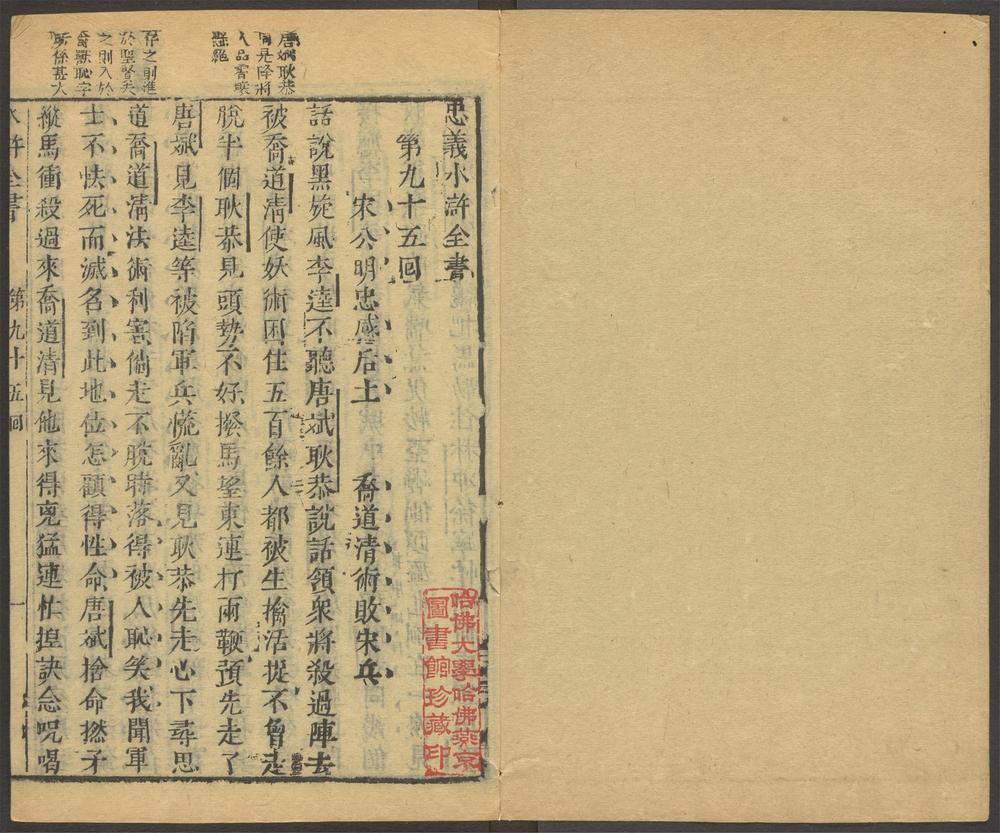 忠義水滸全書
第九十五回
宋公明忠感后土 喬道清術敗宋兵
話說黑旋風李逵不聽唐斌耿恭說話領衆將殺過陣去
被喬道清使妖術困住五百餘人都被生擒活捉不曾走
脫半個耿恭見頭勢不好撥馬望東連打兩鞭預先走了
唐斌見李逵等被陷軍兵慌亂又見耿恭先走心下尋思
道喬道清法術利害倘走不脫時落得被人恥笑我聞軍
士不怯死而滅名到此地位怎顧得性命唐斌捨命撚矛
縱馬衝殺過來喬道清見他來得兇猛連忙揑訣念呪喝
水滸全書 第九十五回 一
唐斌耿恭
同是降將
人品霄壤
懸絶
存之則進
於聖賢失
之則入於
禽獸恥字
所係甚大
哈佛大學哈佛燕京
圖書館珍藏印